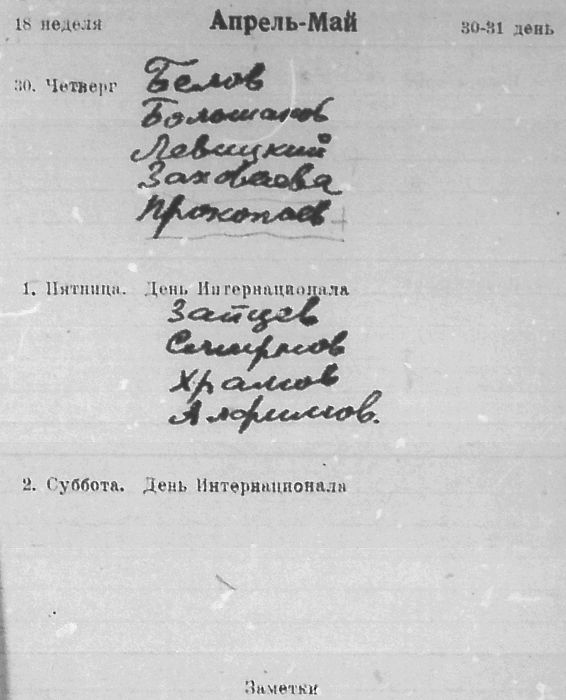 18 неделя Апрель-Май 30-31 день
30. Четверг Белов
Болошапов
Левицкий
Заховаева
Прокопаев
1. Пятница. День Интернационала
Зайцев
Смирнов
Храмов
Алфимов.
2. Суббота. День Интернационала
Заметки